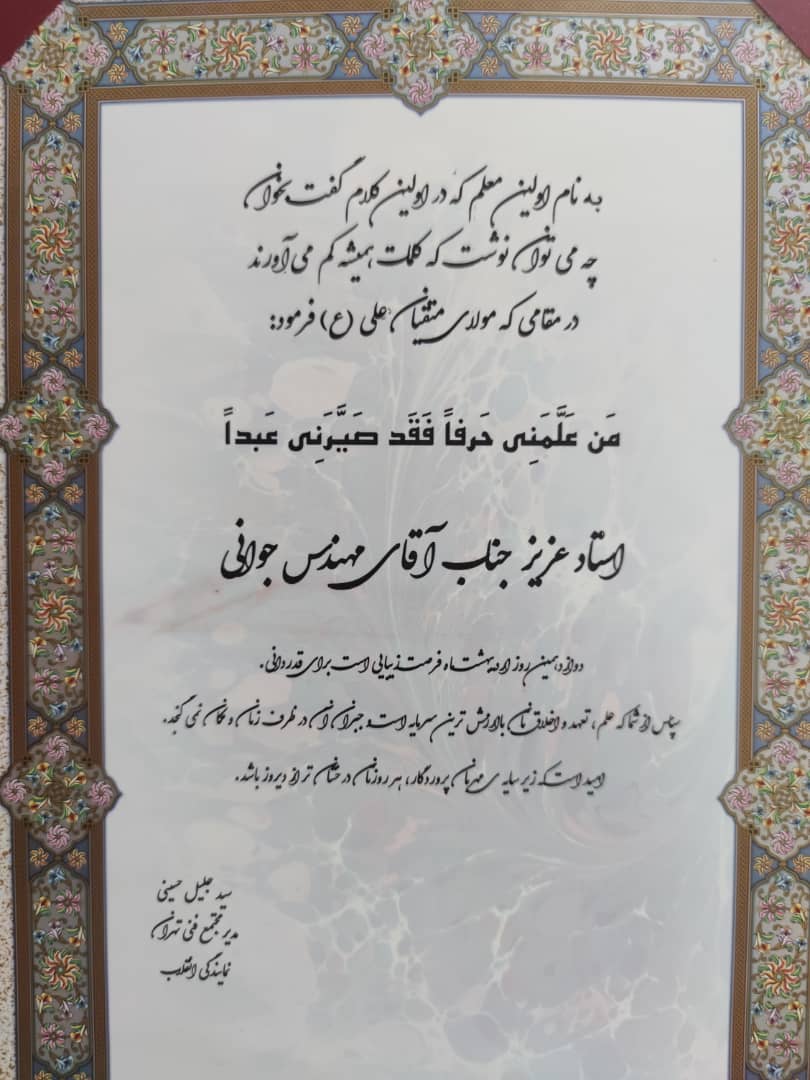 به نام اولین معلم که در اولین کلام گفت بخوان
چه می توان نوشت که کلمات همیشه کم می آورند
در مقامی که مولای متقیان علی (ع) فرمود:
مَن عَلَّمَنِی حَرفاً فَقَد صَیَّرَنِی عَبداً
استاد عزیز جناب آقای مهندس جوانی
دوازدهمین روز اردیبهشت ماه فرصت زیبایی است برای قدردانی.
سپاس از شما که علم، تعهد و اخلاق تان با ارزش ترین سرمایه است و جبران آن در ظرف زمان و مکان نمی گنجد.
امید است که زیر سایه ی مهربان پروردگار، هر روزتان درخشان تر از دیروز باشد.
سید جلیل حسینی
مدیر مجتمع فنی تهران
نمایندگی انقلاب